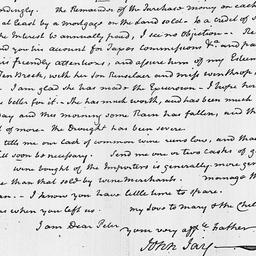 rdingly. The Remainder of the Purchase money on cash
at least by a mortgage on the Land sold - To a credit of
the Interest be annually paid, I see no objection -- Re
nd you his account for Taxes Commissions &c. and pa
is friendly attentions, and assure him of my Esteem
Ten Broeck, with her Son Rensselaer and miss winthrop,
-- I am glad she has made the Excursion - I hope her
better for it - She has much worth, and has been much
day and this morning some Rain has fallen, and th
of more - The Drought has been severe.
tell me our cask of common wine runs low, and th
ill soon be necessary. Send me one or two casks of g
wine bought of the Importers is generally more gen
e than that sold by wine merchants. manage th
n -- I know you have little time to spare.
as when you left us. my love to Mary & the Chil
I am Dear Peter your very affte. Father
John Jay